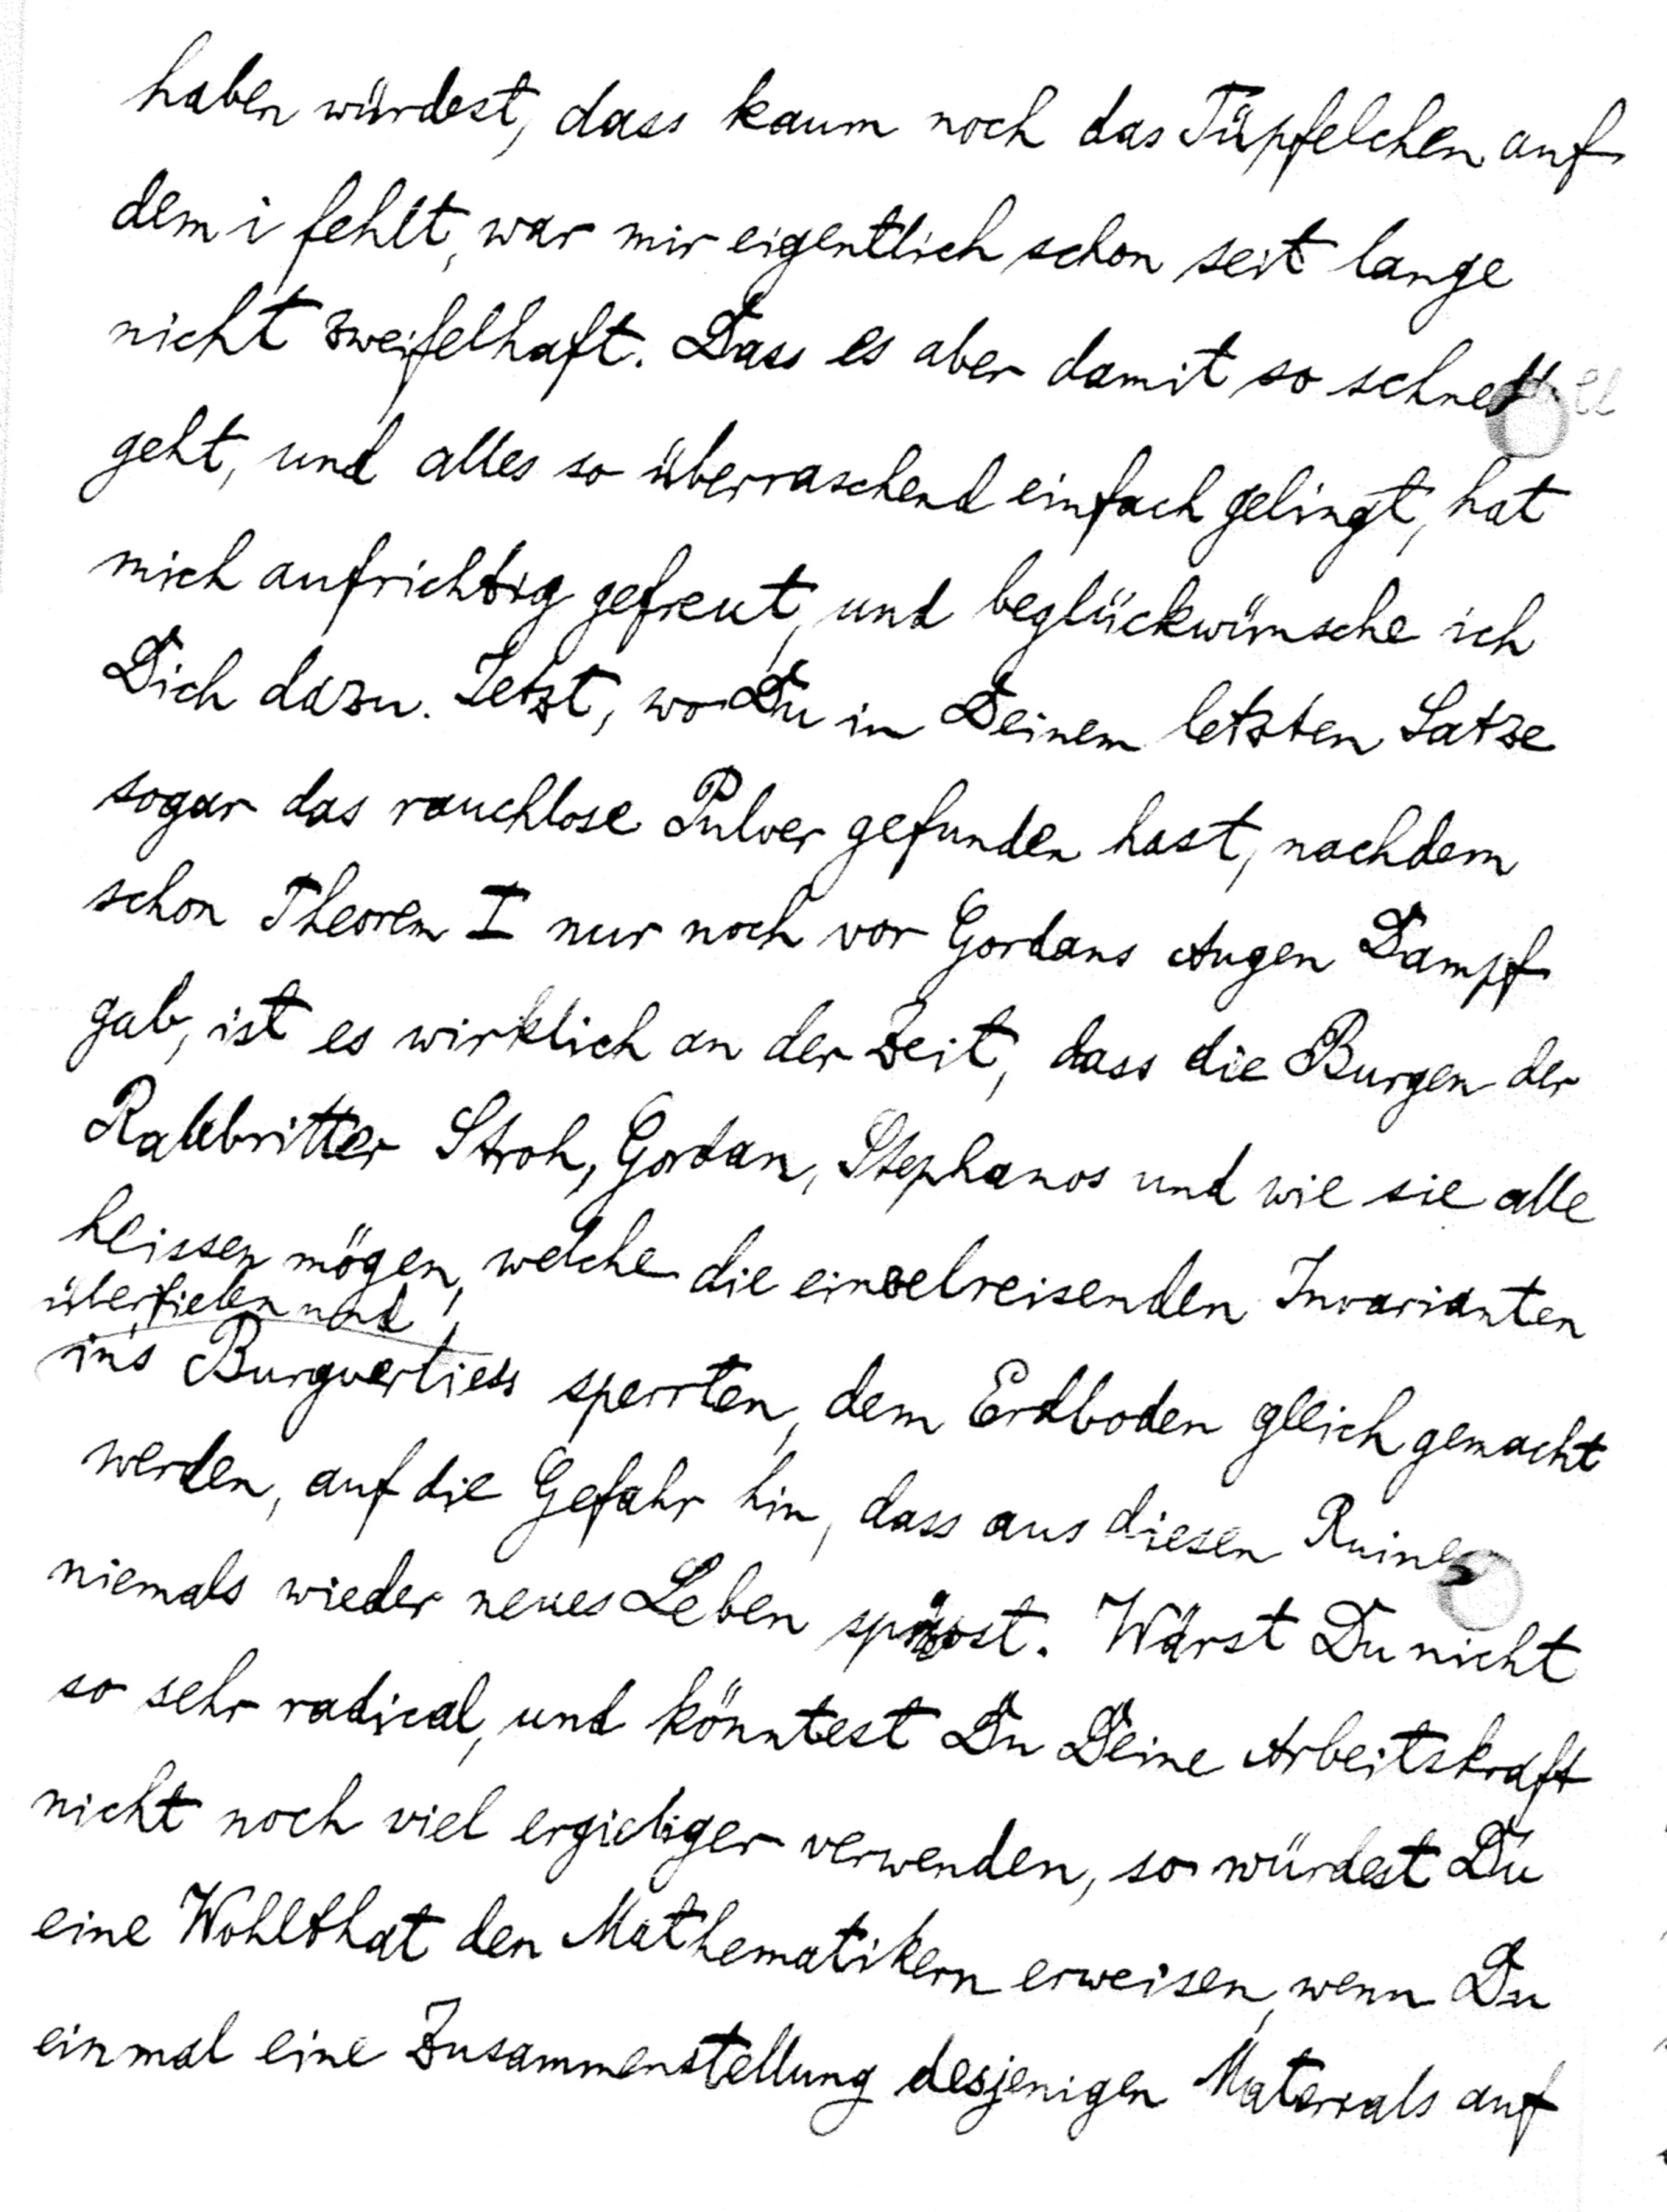 haben würdest, dass kaum noch das Tüpfelchen auf
dem i fehlt, war mir eigentlich schon seit lange
nicht zweifelhaft. Dass es aber damit so schnell
geht, und alles so überraschend einfach gelingt, hat
mich aufrichtig gefreut, und beglückwünsche ich
Dich dazu. Jetzt, wo Du in Deinem letzten Satze
sogar das rauchlose Pulver gefunden hast, nachdem
schon Theorem I nur noch vor Gordans Augen Dampf
gab, ist es wirklich an der Zeit, dass die Burgen der
Raubritter Stroh, Gordan, Stephanos und wie sie alle
heissen mögen, welche die einzelreisenden Invarianten
überfielen und
in's Burgverliess sperrten, dem Erdboden gleich gemacht
werden, auf die Gefahr hin, dass aus diesen Ruinen
niemals wieder neues Leben sprosst. Wärst Du nicht
so sehr radical, und könntest Du Deine Arbeitskraft
nicht noch viel ergiebiger verwenden, so würdest Du
eine Wohlthat den Mathematikern erweisen, wenn Du
einmal eine Zusammenstellung desjenigen Materials auf